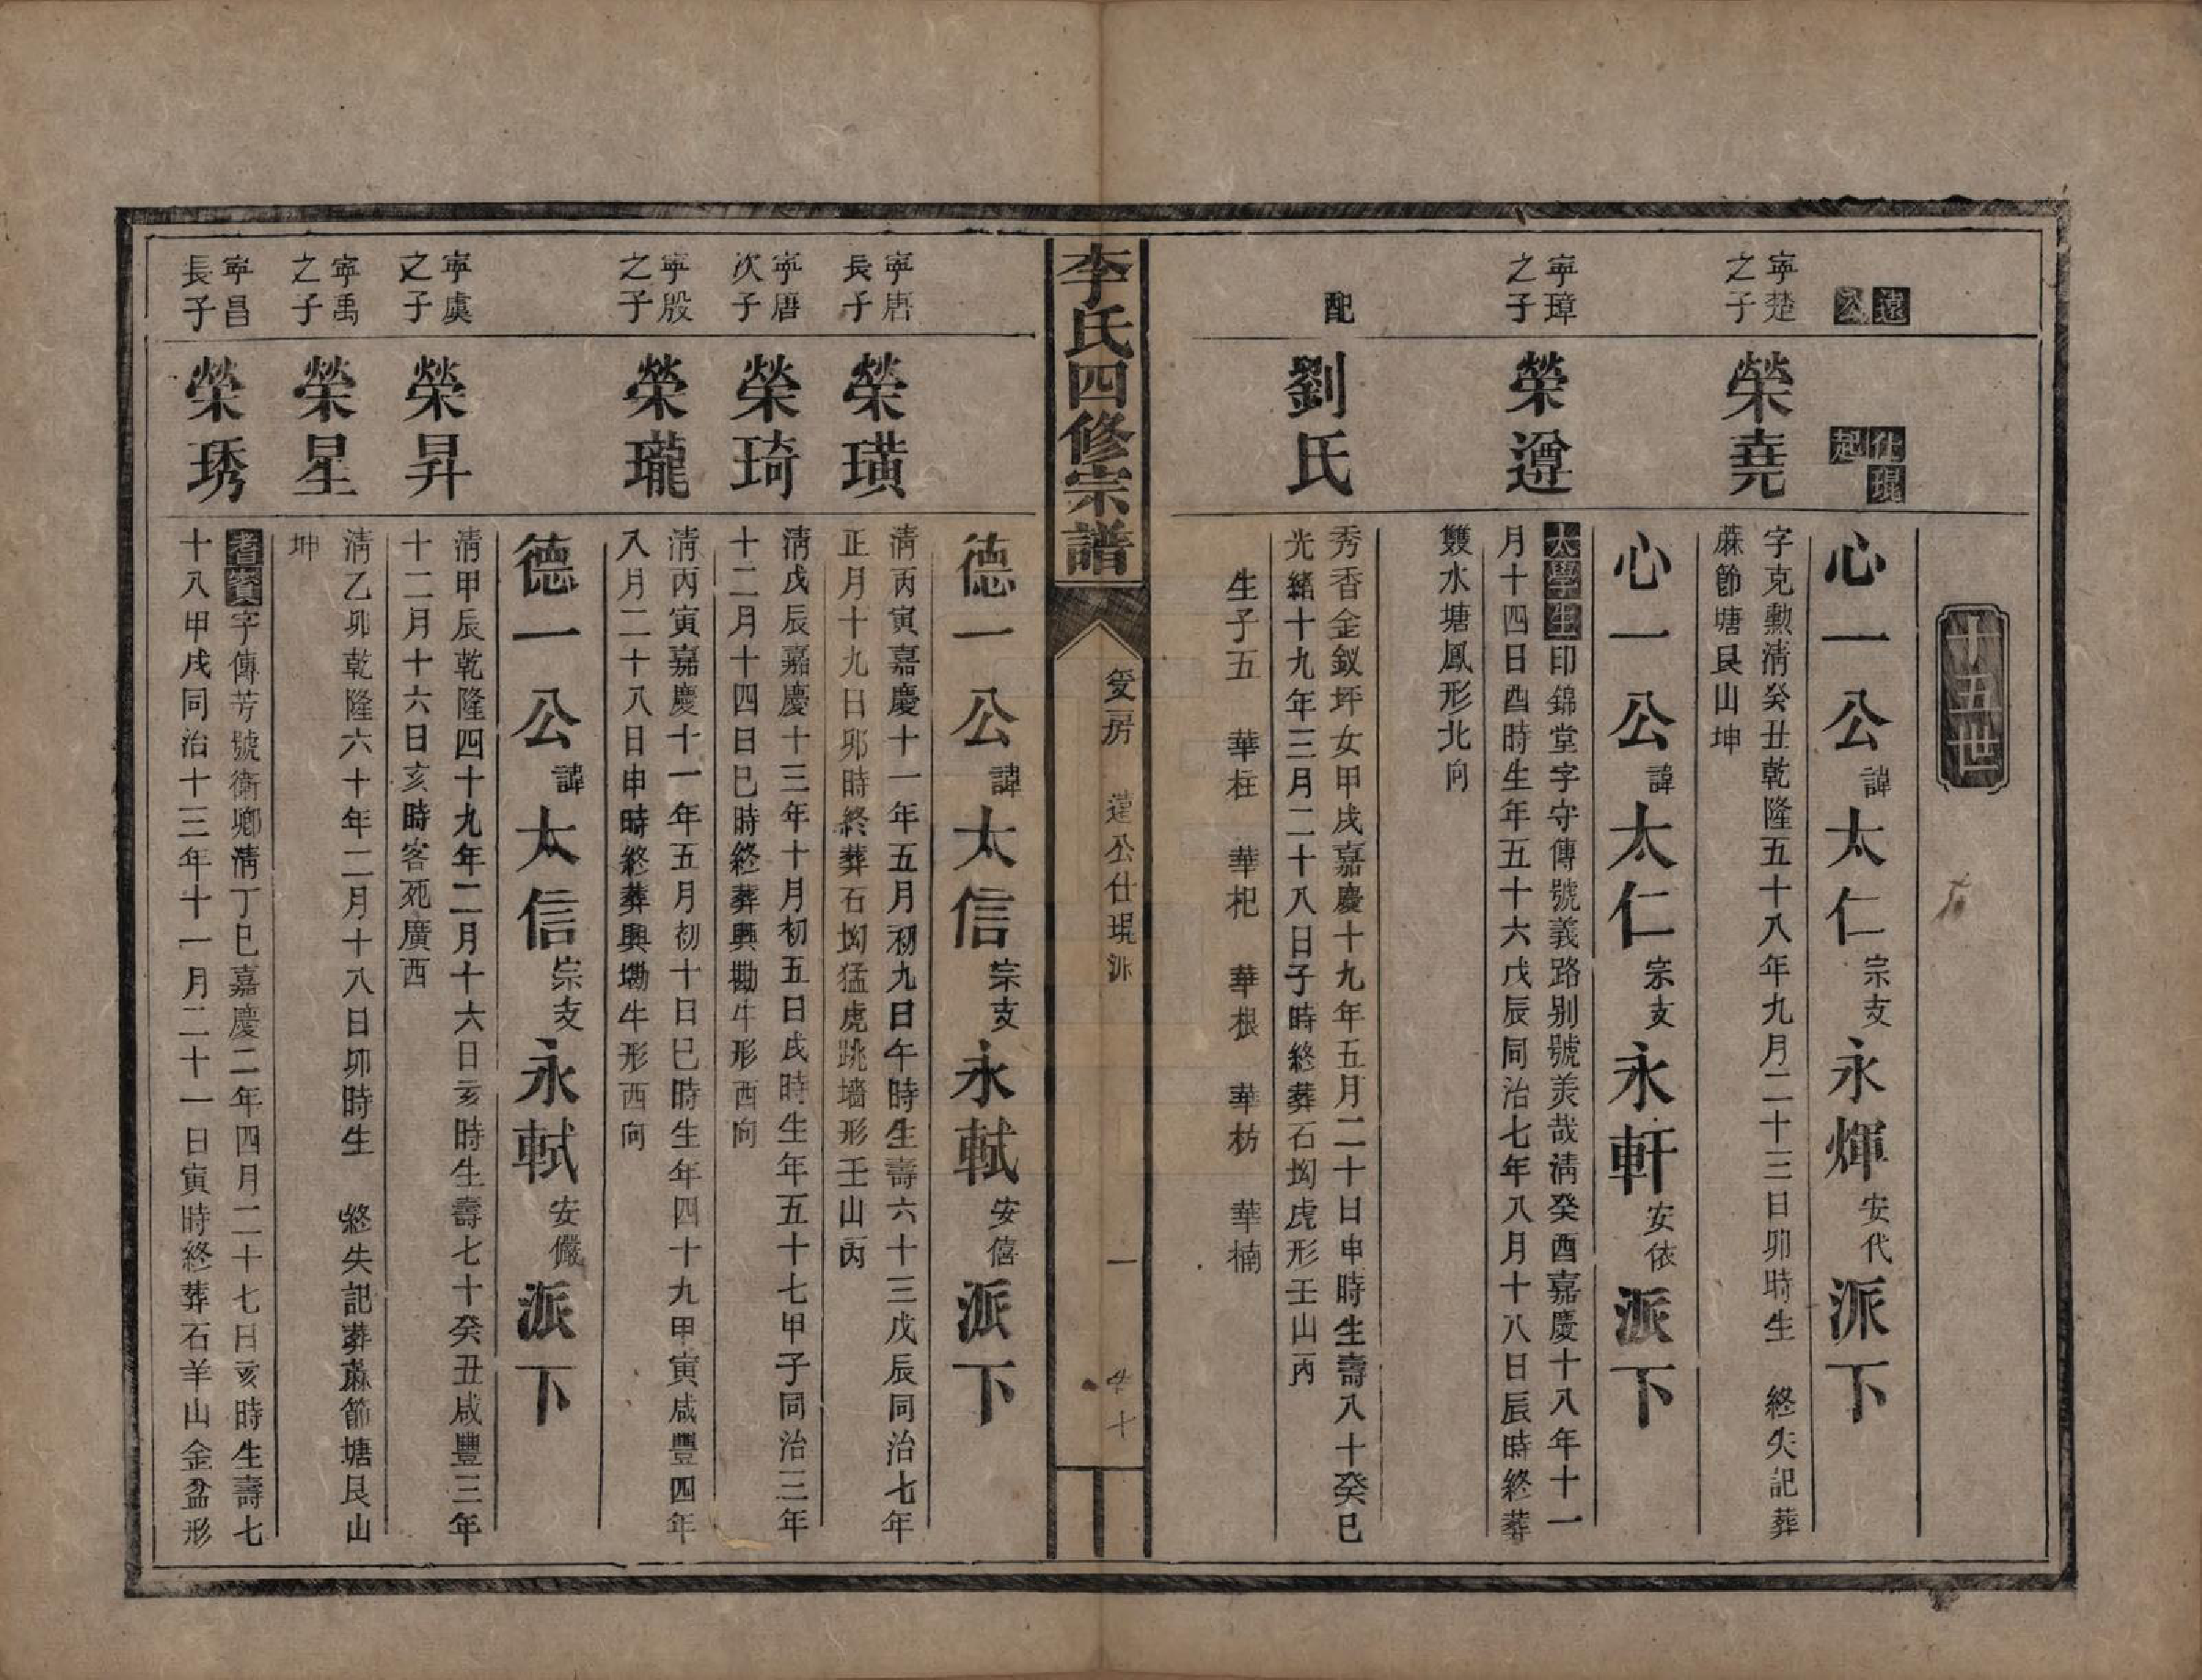 十五世
遠公
仕琨起
心一公諱太仁宗支永煇安代派下
寧楚之子
榮堯
字克勲淸癸丑乾隆五十八年九月二十三日卯時生　終失記葬
蔴節塘艮山坤
心一公諱太仁宗支永軒安依派下
寧璋之子
榮遵
太學生印錦堂字守傳號義路别號美哉淸癸酉嘉慶十八年十一
月十四日酉時生年五十六戊辰同治七年八月十八日辰時終葬
雙水塘鳳形北向
配
劉氏
秀香金釵坪女甲戌嘉慶十九年五月二十日申時生壽八十癸巳
光緒十九年三月二十八日子時終葬石坳虎形壬山丙
生子五　華柱　華杞　華根　華枋　華楠
李氏四修宗譜
房　遠公仕琨派
一
德一公諱太信宗支永軾安僖派下
寧唐長子
榮璜
淸丙寅嘉慶十一年五月初九日午時生壽六十三戊辰同治七年
正月十九日卯時終葬石坳猛虎跳墻形壬山丙
寧唐次子
榮琦
淸戊辰嘉慶十三年十月初五日戌時生年五十七甲子同治三年
十二月十四日巳時終葬興勘牛形西向
寧殷之子
榮瓏
淸丙寅嘉慶十一年五月初十日巳時生年四十九甲寅咸豐四年
八月二十八日申時終葬興塲牛形西向
德一公諱太信宗支永軾安儼派下
寧虞之子
榮昇
淸甲辰乾隆四十九年二月十六日亥時生壽七十癸丑咸豐三年
十二月十六日亥時客死廣西
寧禹之子
榮星
淸乙卯乾隆六十年二月十八日卯時生　終失記葬蔴節塘艮山
坤
寧昌長子
榮琇
耆賓字傳芳號衛鄉淸丁巳嘉慶二年四月二十七日亥時生壽七
十八甲戌同治十三年十一月二十一日寅時終葬石羊山金盆形